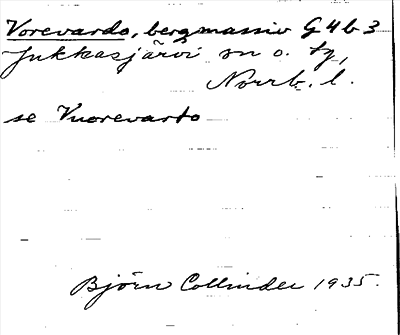 Vorevardo, bergmassiv G4b3
Jukkasjärvi sn o. tg,
Norrb. l.
se Vuorevarto
Björn Collinder 1935.